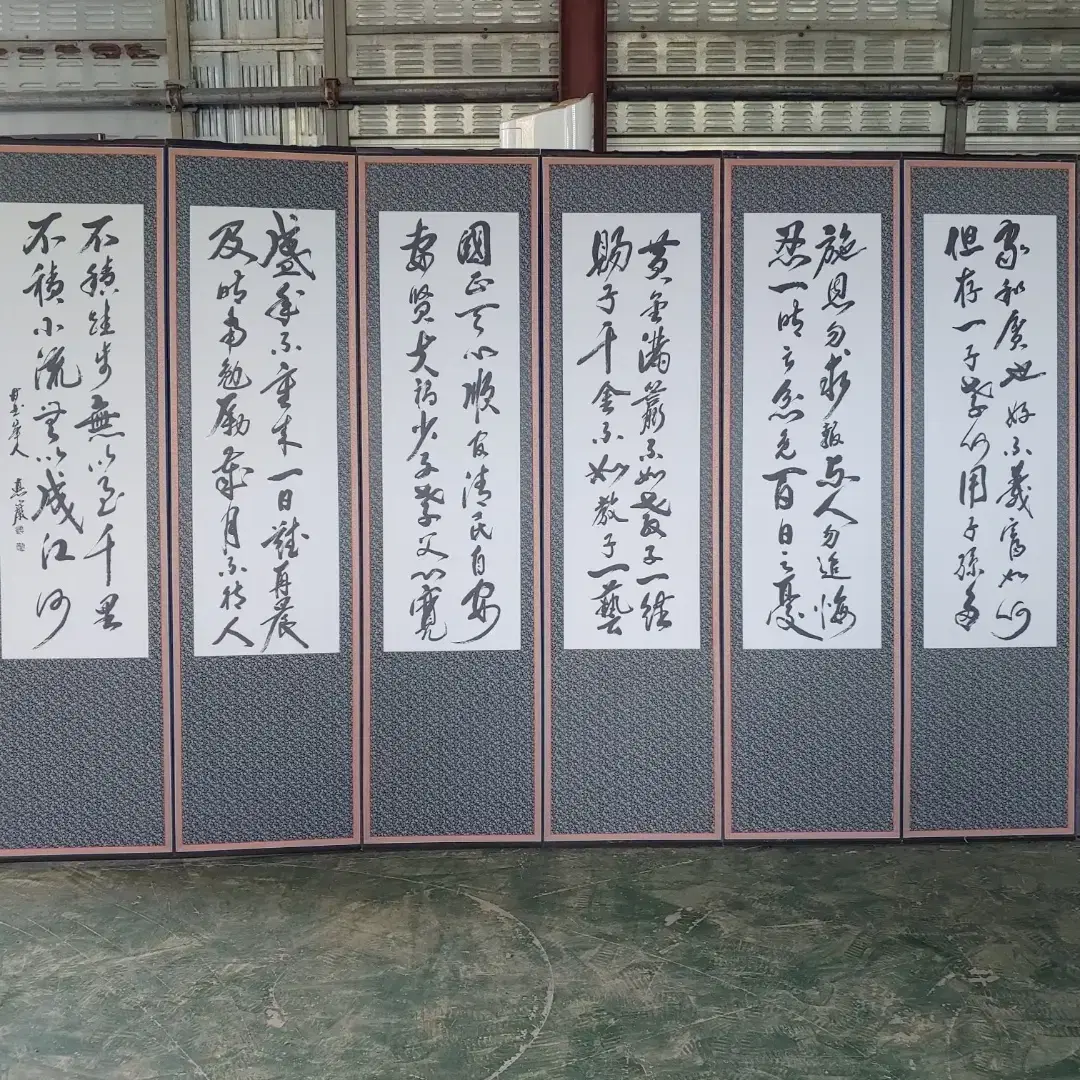 家和貧也好不義富如何
但存一子孝何用子孫多
施恩勿求報与人勿追悔
忍一時之忿免百日之憂
黄金滿籯不如教子一經
賜子千金不如教子一藝
國正天心順官清民自安
妻賢夫禍少子孝父心寬
盛年不重来一日難再晨
及時當勉勵歲月不待人
不積跬步無以至千里
不積小流無以成江河